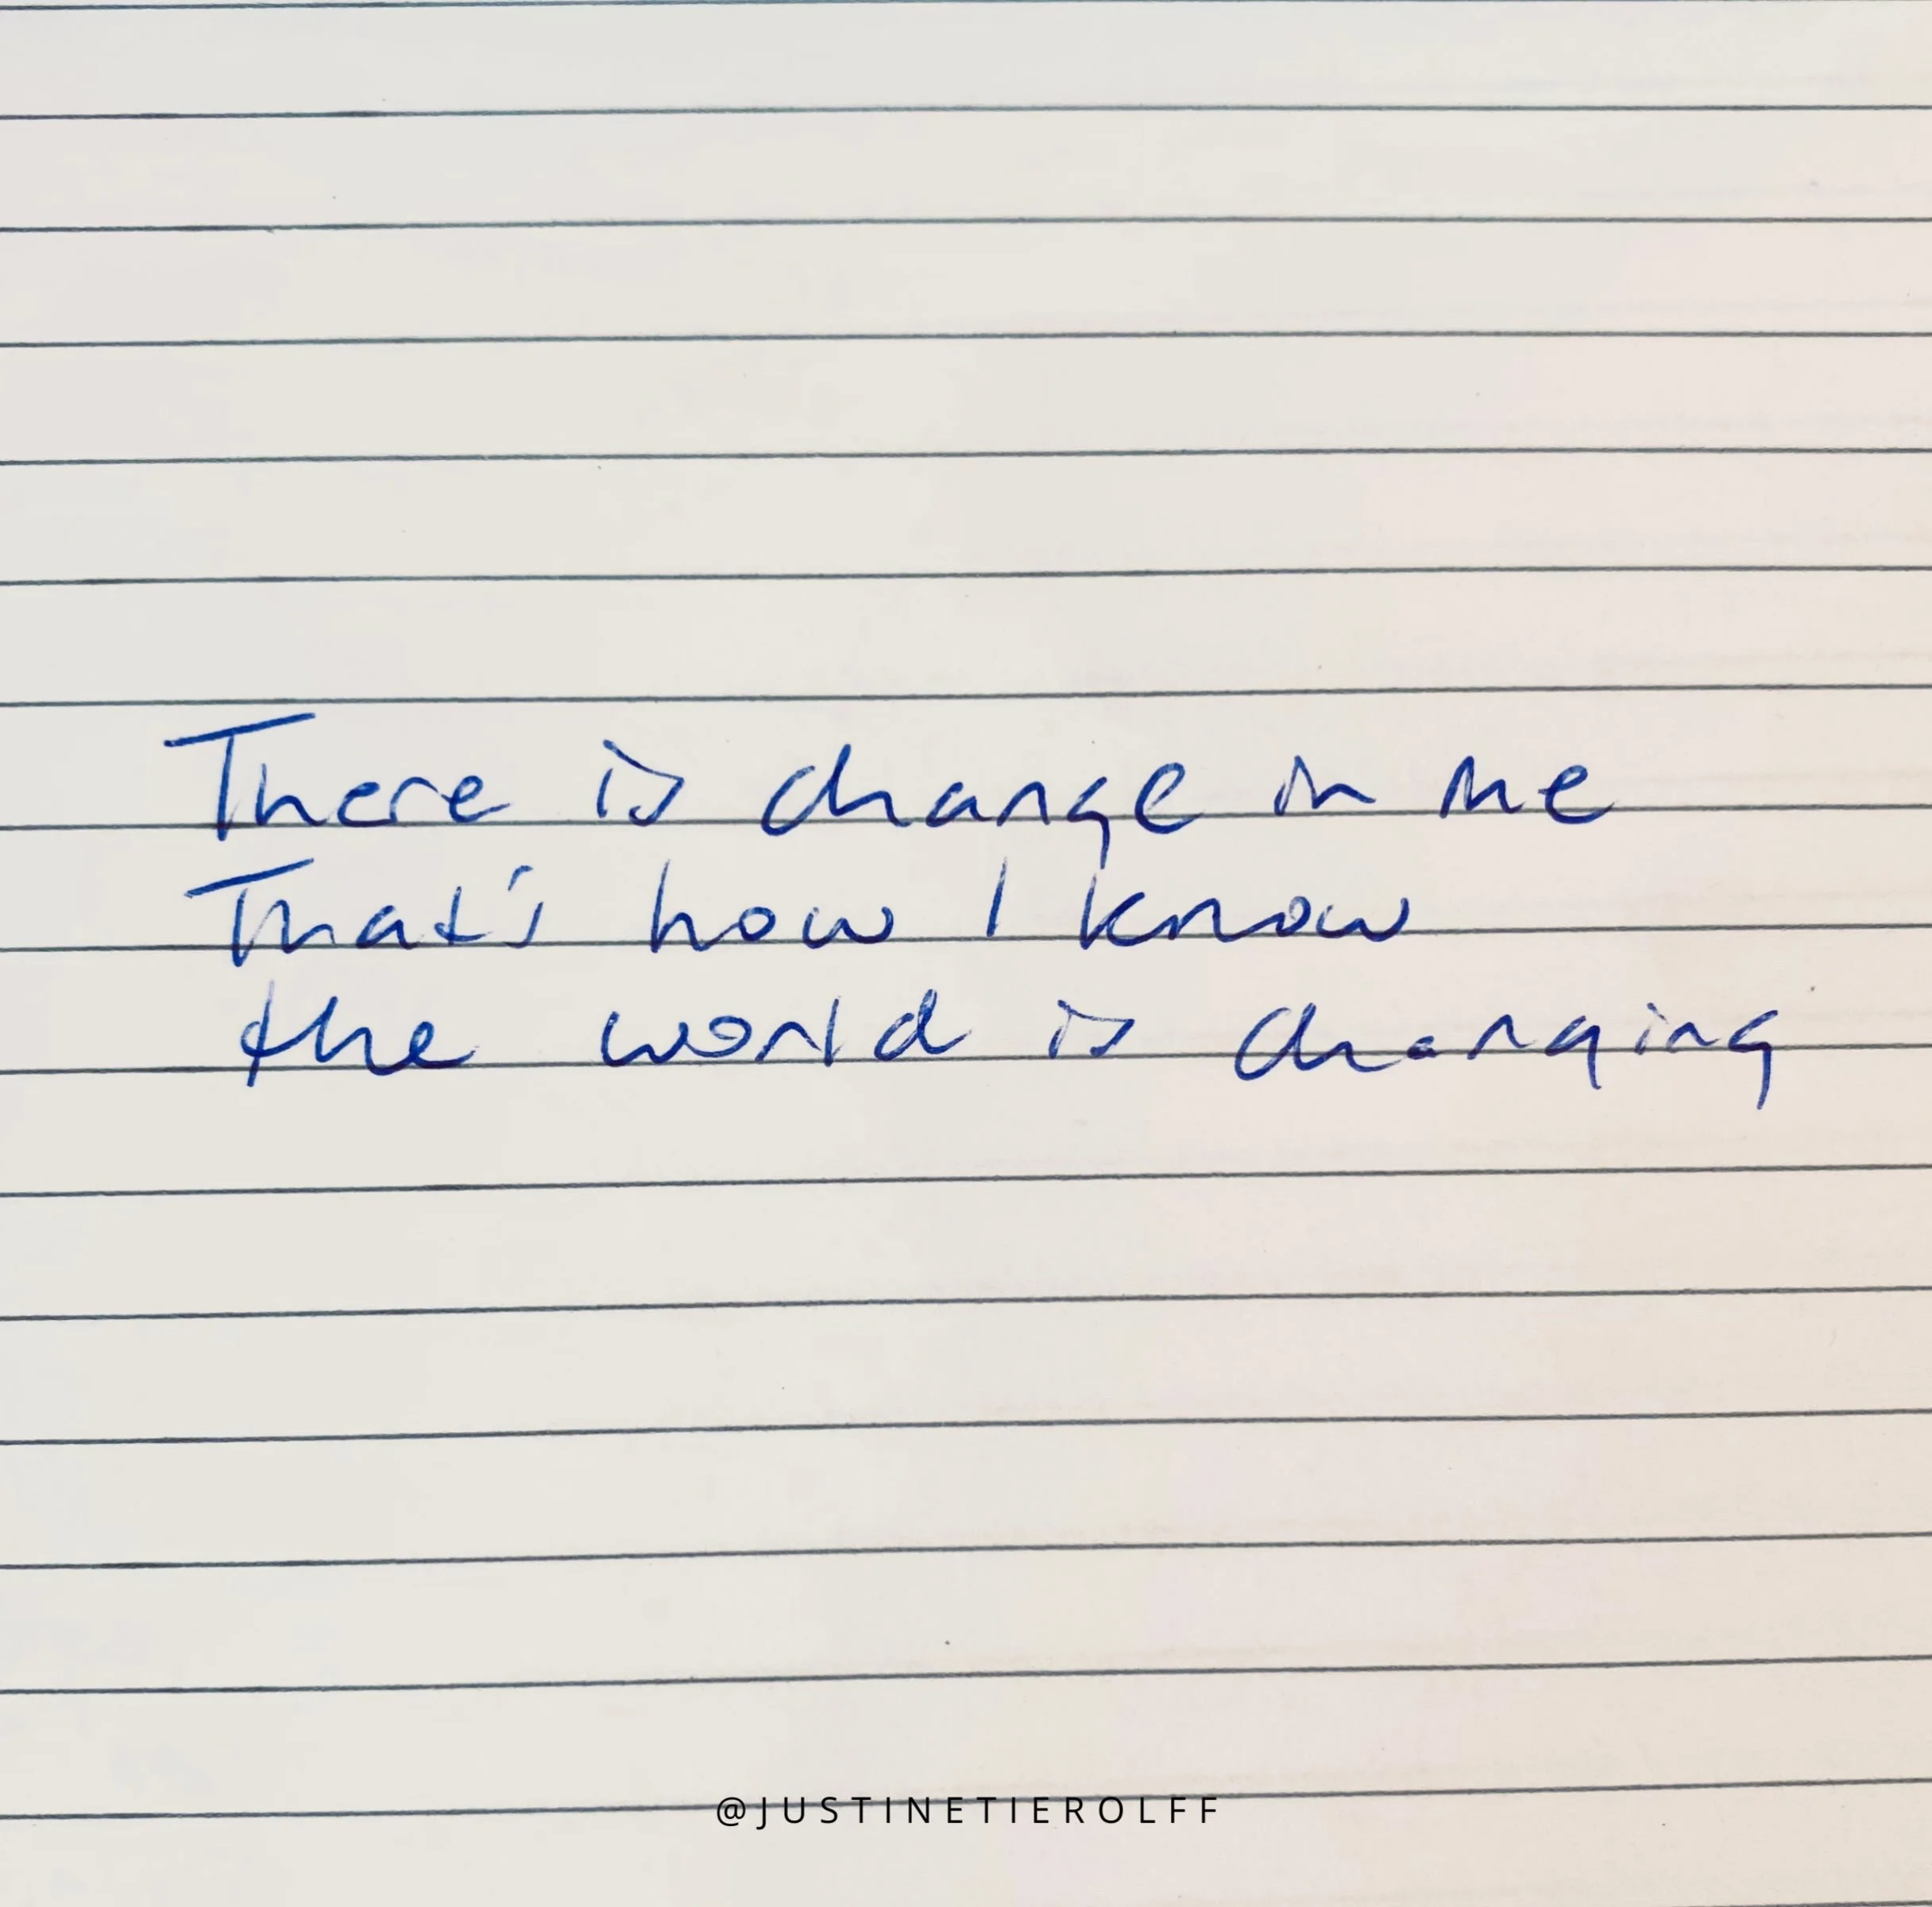 There is change in me
That's how I know
the world is changing
@JUSTINETIEROLFF